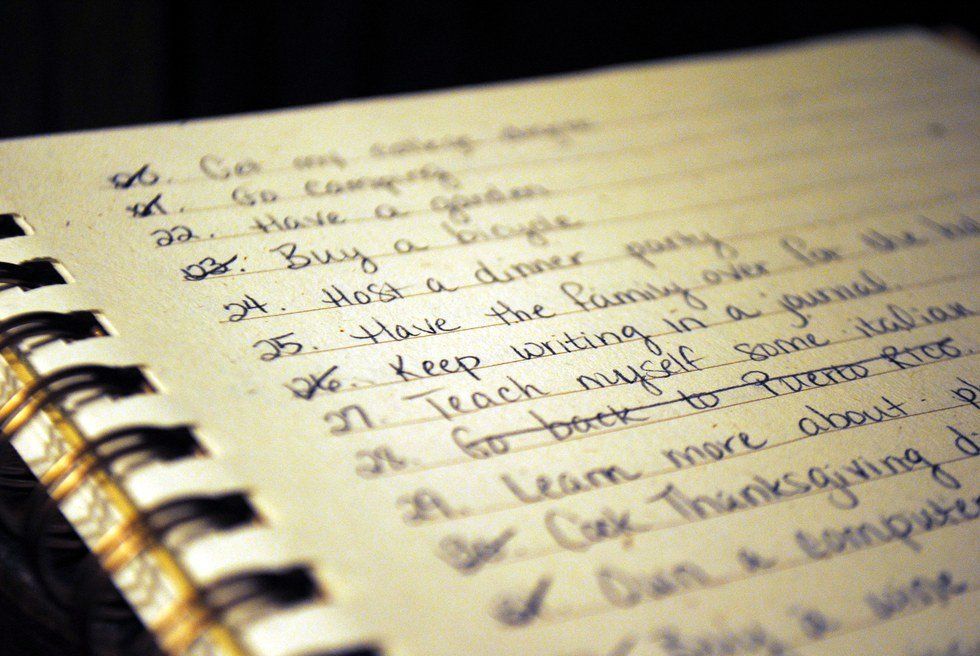 20. Get my college degree
21. Go camping
22. Have a garden
23. Buy a bicycle
24. Host a dinner party
25. Have the family over for the
26. Keep writing in a journal.
27. Teach myself some italian
28. Go back to Puerto Rico.
29. Learn more about
30. Cook Thanksgiving
Own a computer
Buy a